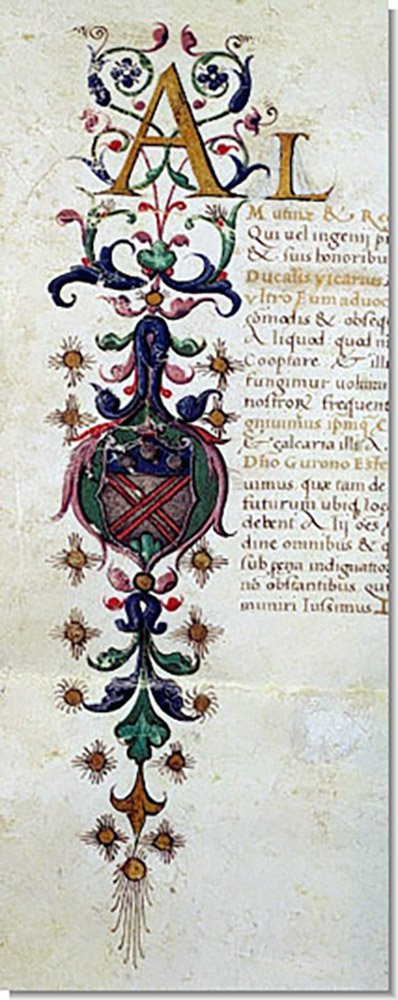 A L
Mutine & Re
Qui uel ingenij p
& suis honoribu
Ducalis vicarius
vltro Eum aduoc
cōmodis & obseq
A liquod quod ni
Cooptare & ill
fungimur uolum
nostrorꝝ frequent
gniuimus ipmq C
& calcaria illi A
Dño Gurono Este
uimus quæ tam de
futurum ubiq loc
debent A Iij
dine omnibus & q
sub pena indignatio
nō obstantibus qui
muniri Iussimus